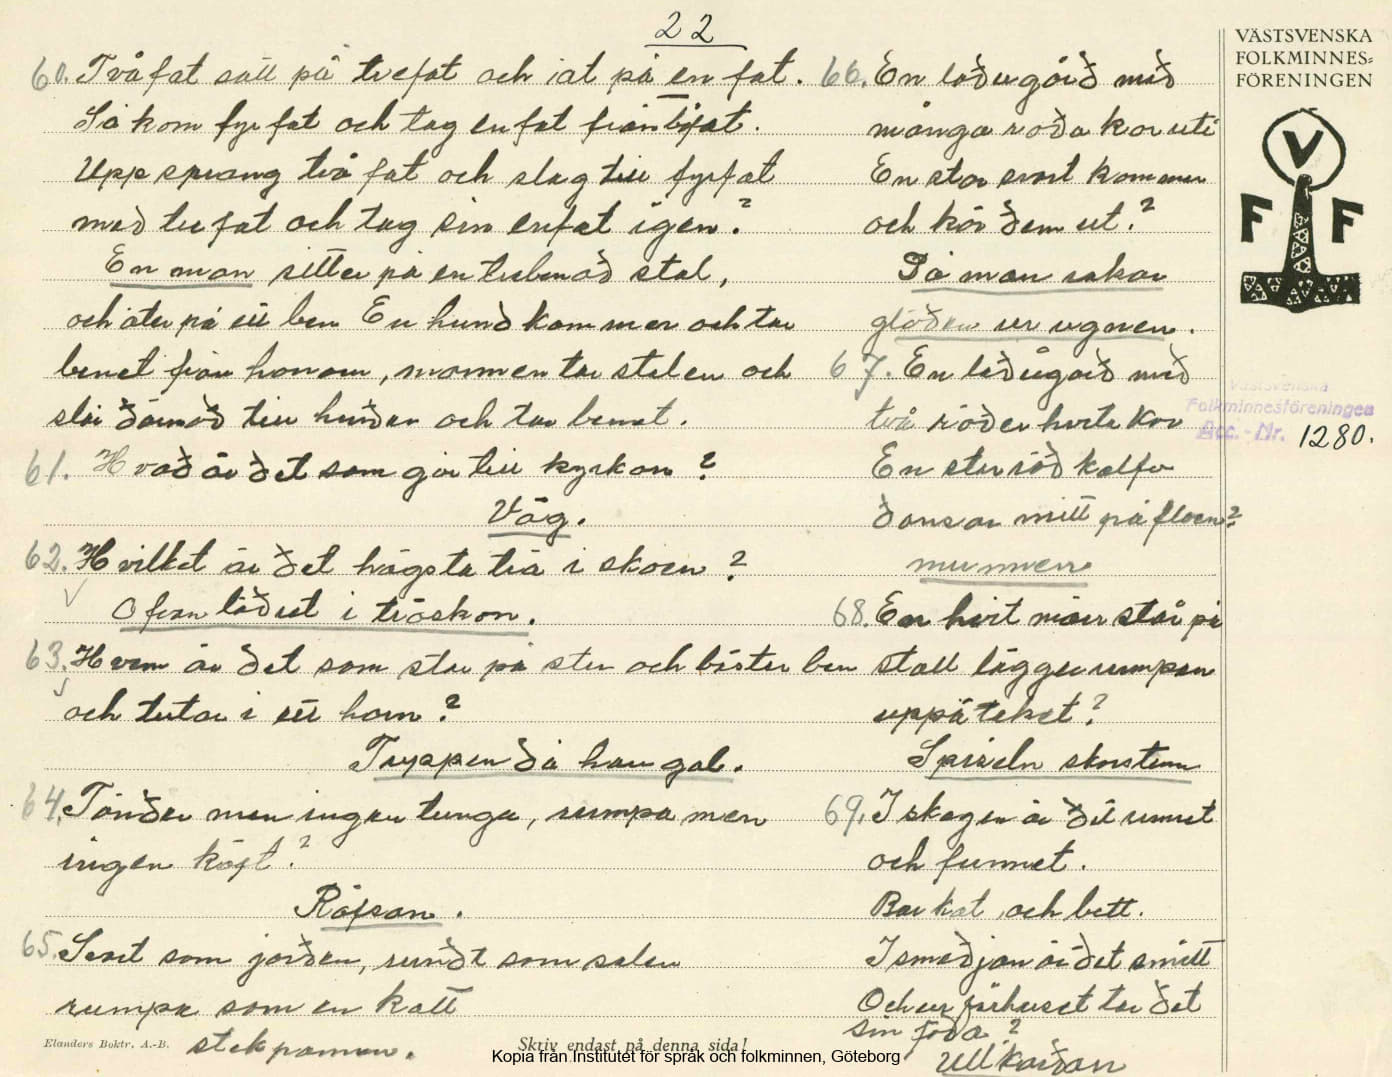 22
60. Två fat satt på trefat och åt på en fat.
Så kom fyrfat och tog enfat från tvåfat.
Upp sprang två fat och slog till fyrfat
med tre fat och tog sin enfat igen?
En man sitter på en trebenad stol,
och äter på ett ben En hund kommer och tar
benet från honom, mannen tar stolen och
slår därmed till hunden och tar benet.
61. Hvad är det som går till kyrkan?
Väg.
62. Hvilket är det högsta trä i skoen?
Ofvan lädret i träskon.
63. Hvem är det som står på sten och bister ben
och tutar i ett horn?
Tuppen då han gal.
64. Tänder men ingen tunga, rumpa men
ingen köft?
Räfsan.
65. Svart som jorden, rundt som solen
rumpa som en katt
stekpannan.
66. En ladugård med
många röda kor uti
En stor svart kommer
och kör dem ut?
Då man rakar
glöden ur ugnen.
67. En ladugård med
två röder hvita kor
En stor röd kalfva
dansar mitt på floen?
munnen
68. En hvit mär står på
stall lägger rumpan
uppå teket?
Spiseln skorsten
69. I skogen är det runnet
och funnet.
Barkat och bett.
I smedjan är det smitt
Och ur fårhuset tar det
sin föda?
Ullkardan
VÄSTSVENSKA
FOLKMINNES-
FÖRENINGEN
V
F F
Västsvenska
Folkminnesföreningen
Acc.-Nr. 1280.
Elanders Boktr. A.-B.
Skriv endast på denna sida!
Kopia från Institutet för språk och folkminnen, Göteborg